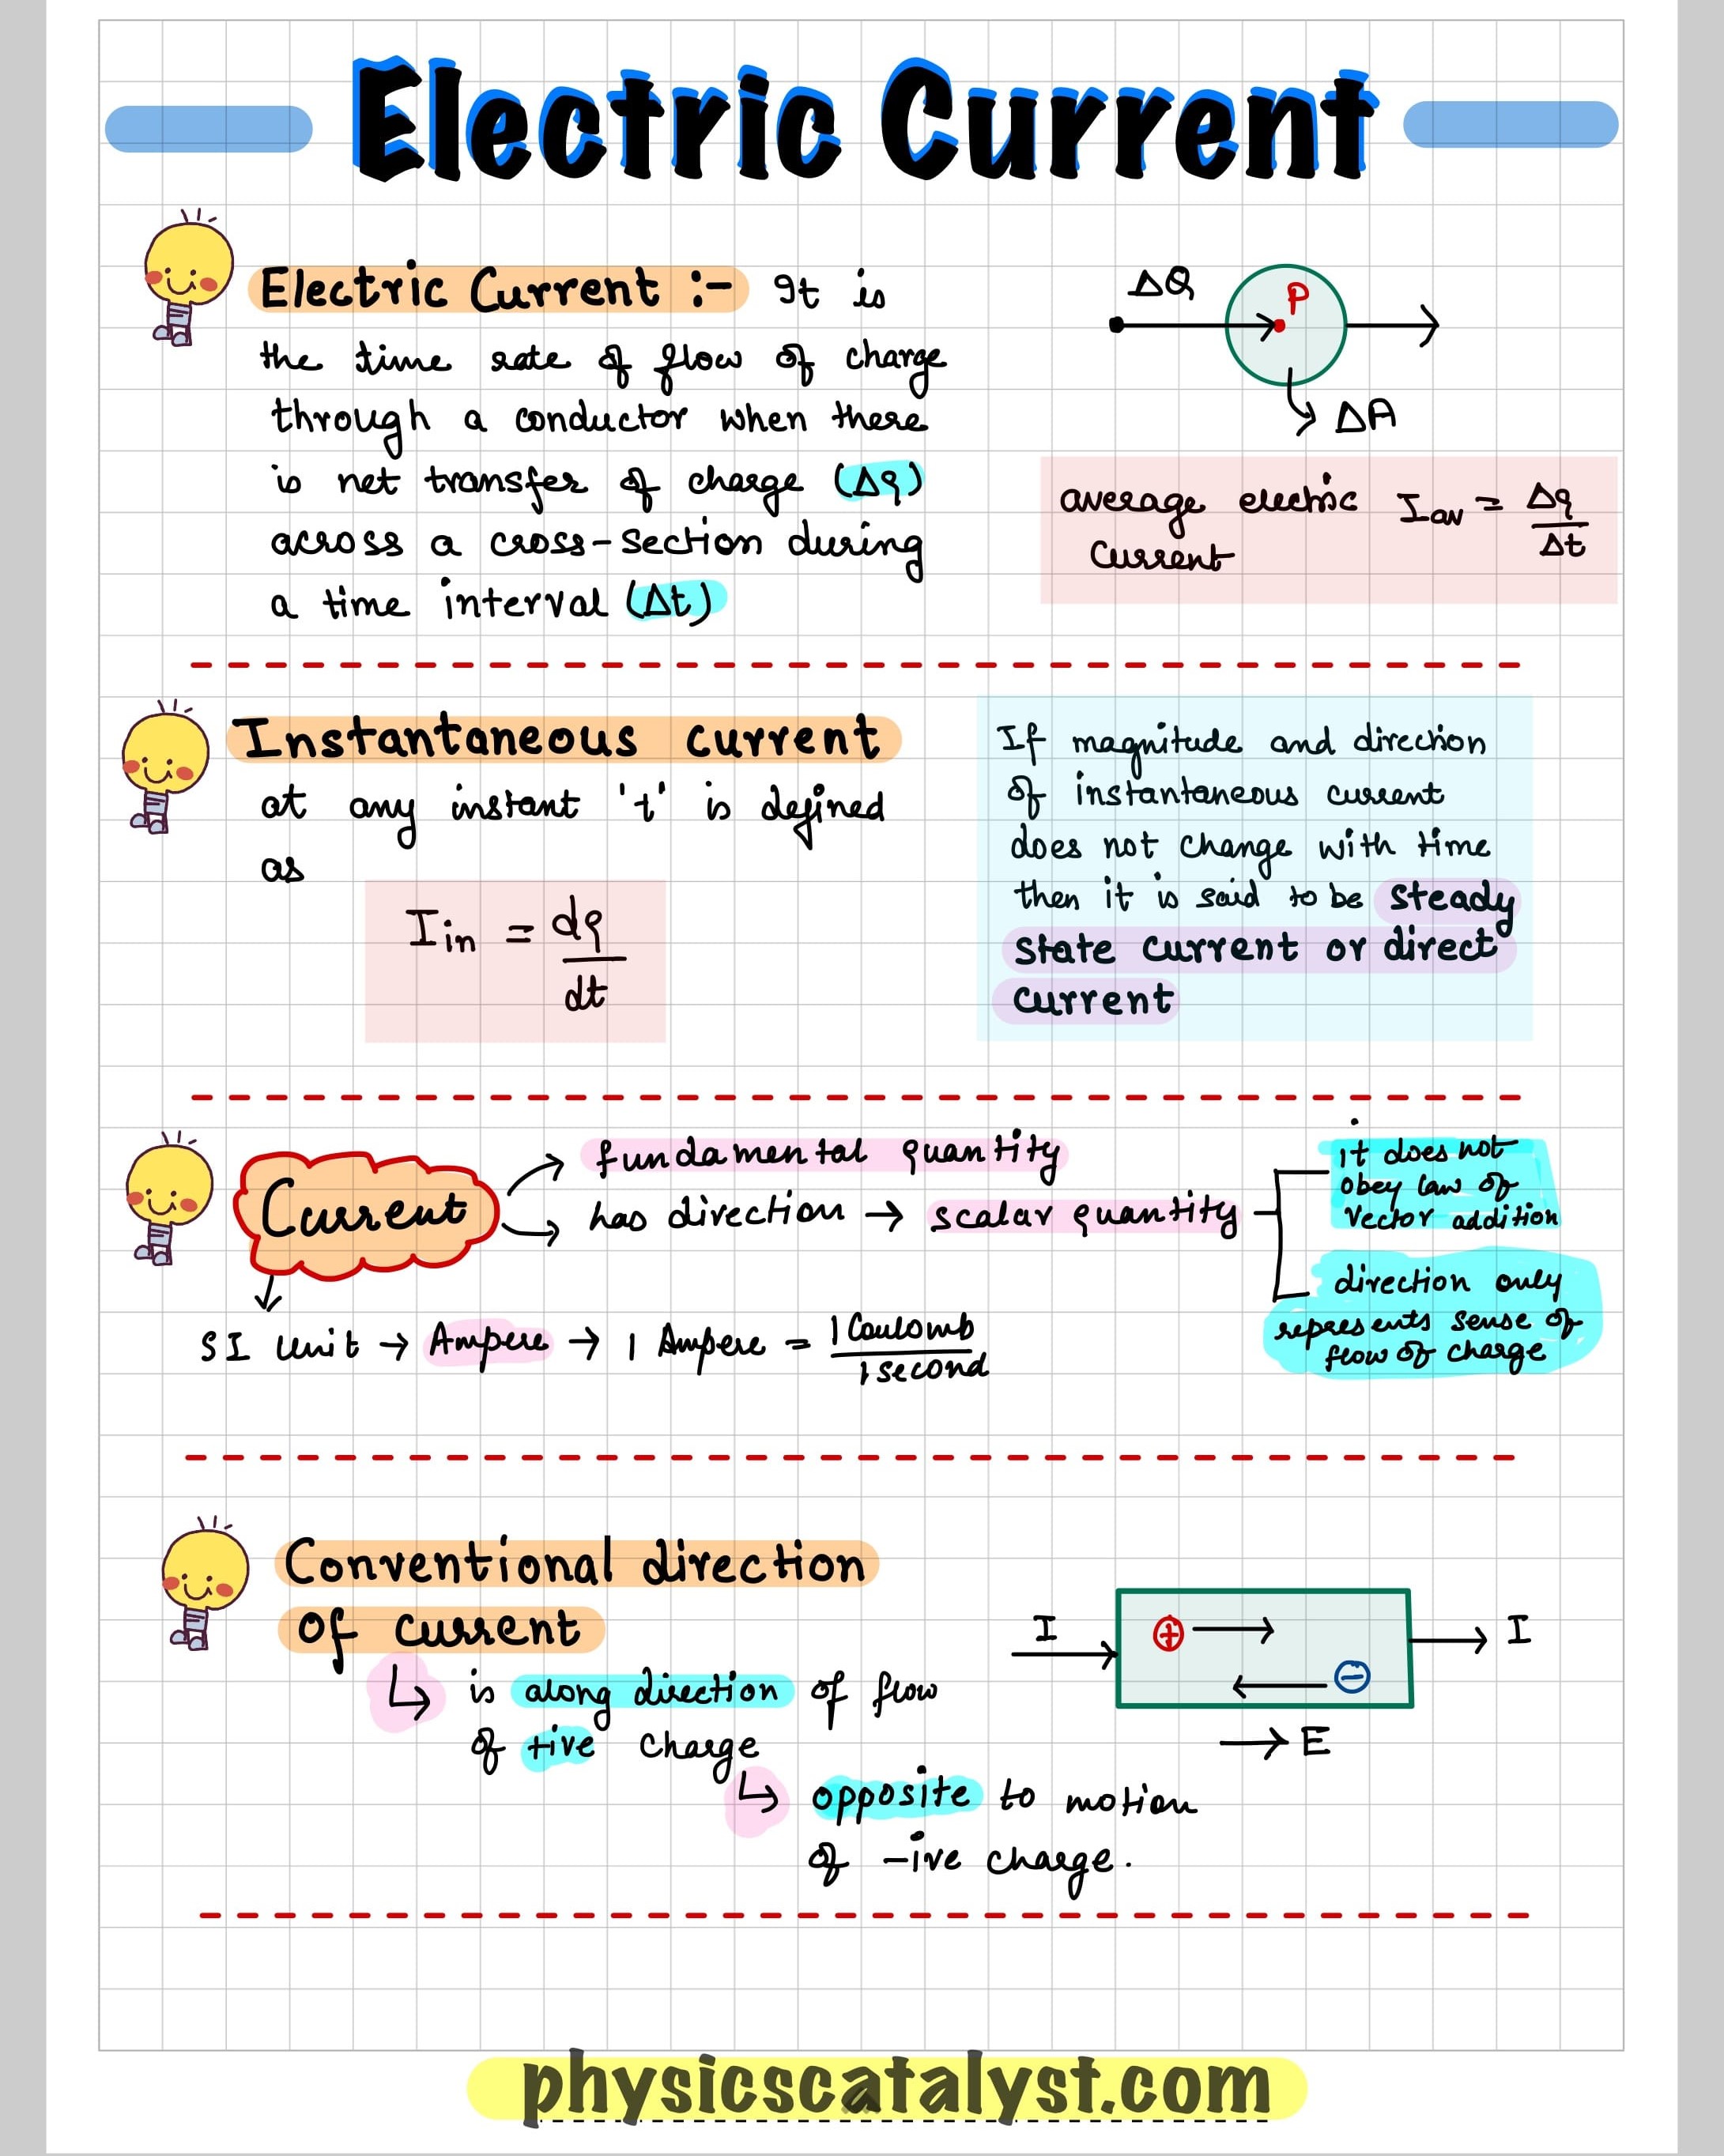 Electric Current
Electric Current :- It is
the time rate of flow of charge
through a conductor when there
is net transfer of charge (Δq)
across a cross-section during
a time interval (Δt)
ΔQ
P
ΔA
average electric I_av = Δq/Δt
Current
Instantaneous current
at any instant 't' is defined
as
I_in = dq/dt
If magnitude and direction
of instantaneous current
does not change with time
then it is said to be steady
state current or direct
current
Current
fundamental quantity
has direction → scalar quantity
it does not
obey law of
vector addition
direction only
represents sense of
flow of charge
SI unit → Ampere → 1 Ampere = 1 Coulomb/1 second
Conventional direction
of current
↳ is along direction of flow
of +ive charge
↳ opposite to motion
of -ive charge.
I
+
I
-
→ E
physicscatalyst.com